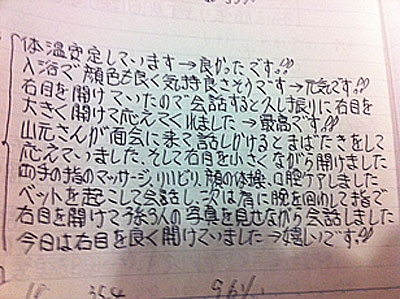 体温安定しています→良かったです!!
入浴で顔色も良く気持良さそうです→元気です!!
右目を開けていたので会話すると久し振りに右目を
大きく開けて応えてくれました→最高です!!
山元さんが面会に来て話しかけるとまばたきをして
応えていました。そして右目を小さくながら開けました
両手の指のマッサージ、リハビリ、顔の体操、口腔ケアしました
ベットを起こして会話し、次は肩に腕を回して指で
右目を開けてう孫3人の写真を見せながら会話しました
今日は右目を良く開けていました→嬉しいです!!
354 96%